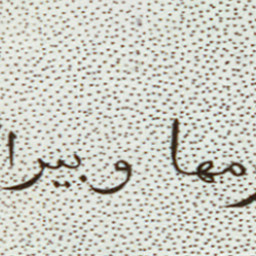 رمها وبيرا